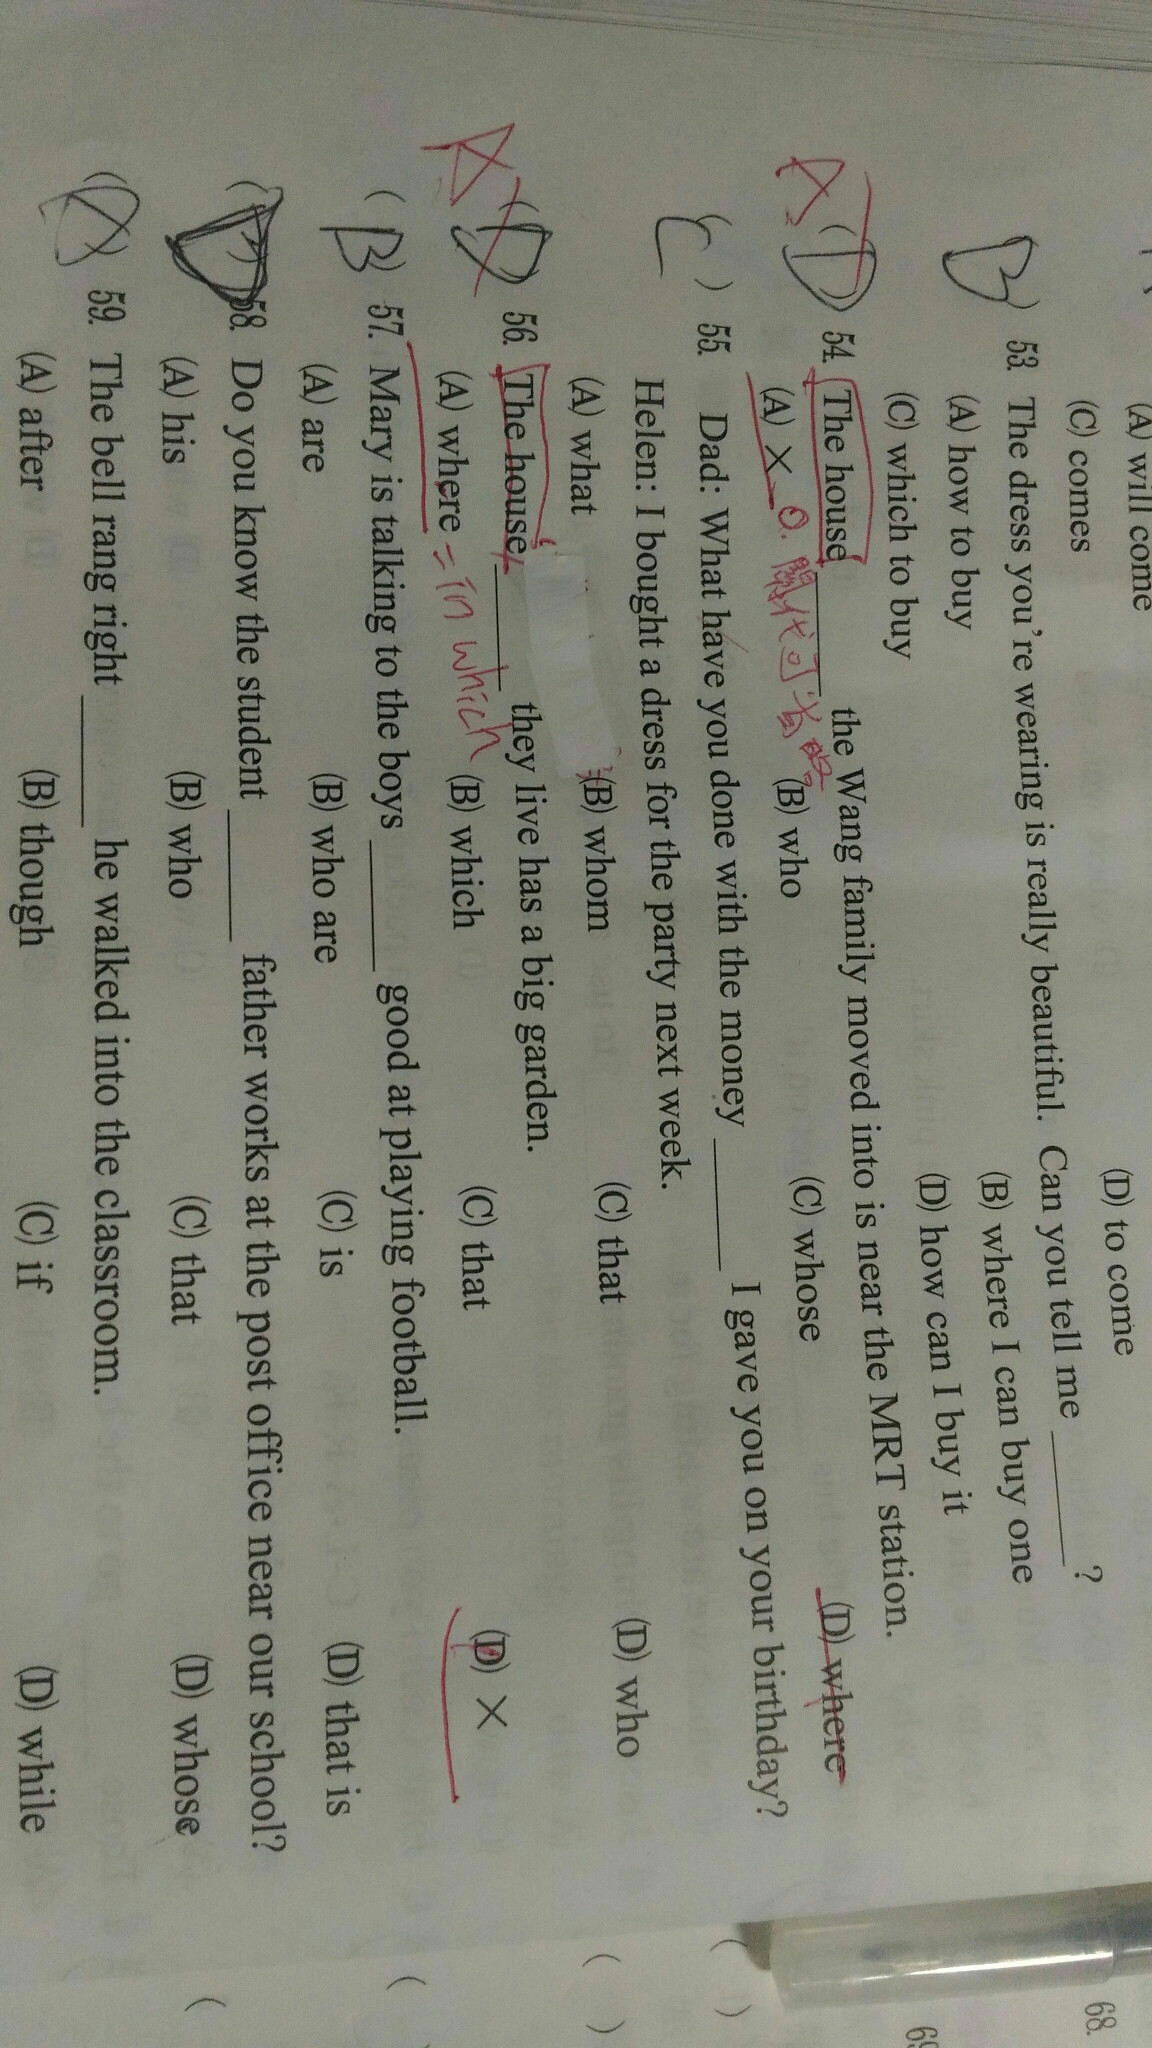 (A) will come
(C) comes (D) to come
B) 53. The dress you're wearing is really beautiful. Can you tell me ______ ?
(A) how to buy (B) where I can buy one
(C) which to buy (D) how can I buy it
A (D) 54. The house ______ the Wang family moved into is near the MRT station.
(A) × O. 關代可省略 (B) who (C) whose (D) where
(C ) 55. Dad: What have you done with the money ______ I gave you on your birthday?
Helen: I bought a dress for the party next week.
(A) what (B) whom (C) that (D) who
A (D) 56. The house ______ they live has a big garden.
(A) where = in which (B) which (C) that (D) ×
(B) 57. Mary is talking to the boys ______ good at playing football.
(A) are (B) who are (C) is (D) that is
(D) 58. Do you know the student ______ father works at the post office near our school?
(A) his (B) who (C) that (D) whose
( ) 59. The bell rang right ______ he walked into the classroom.
(A) after (B) though (C) if (D) while
( ) 68.
( ) 69